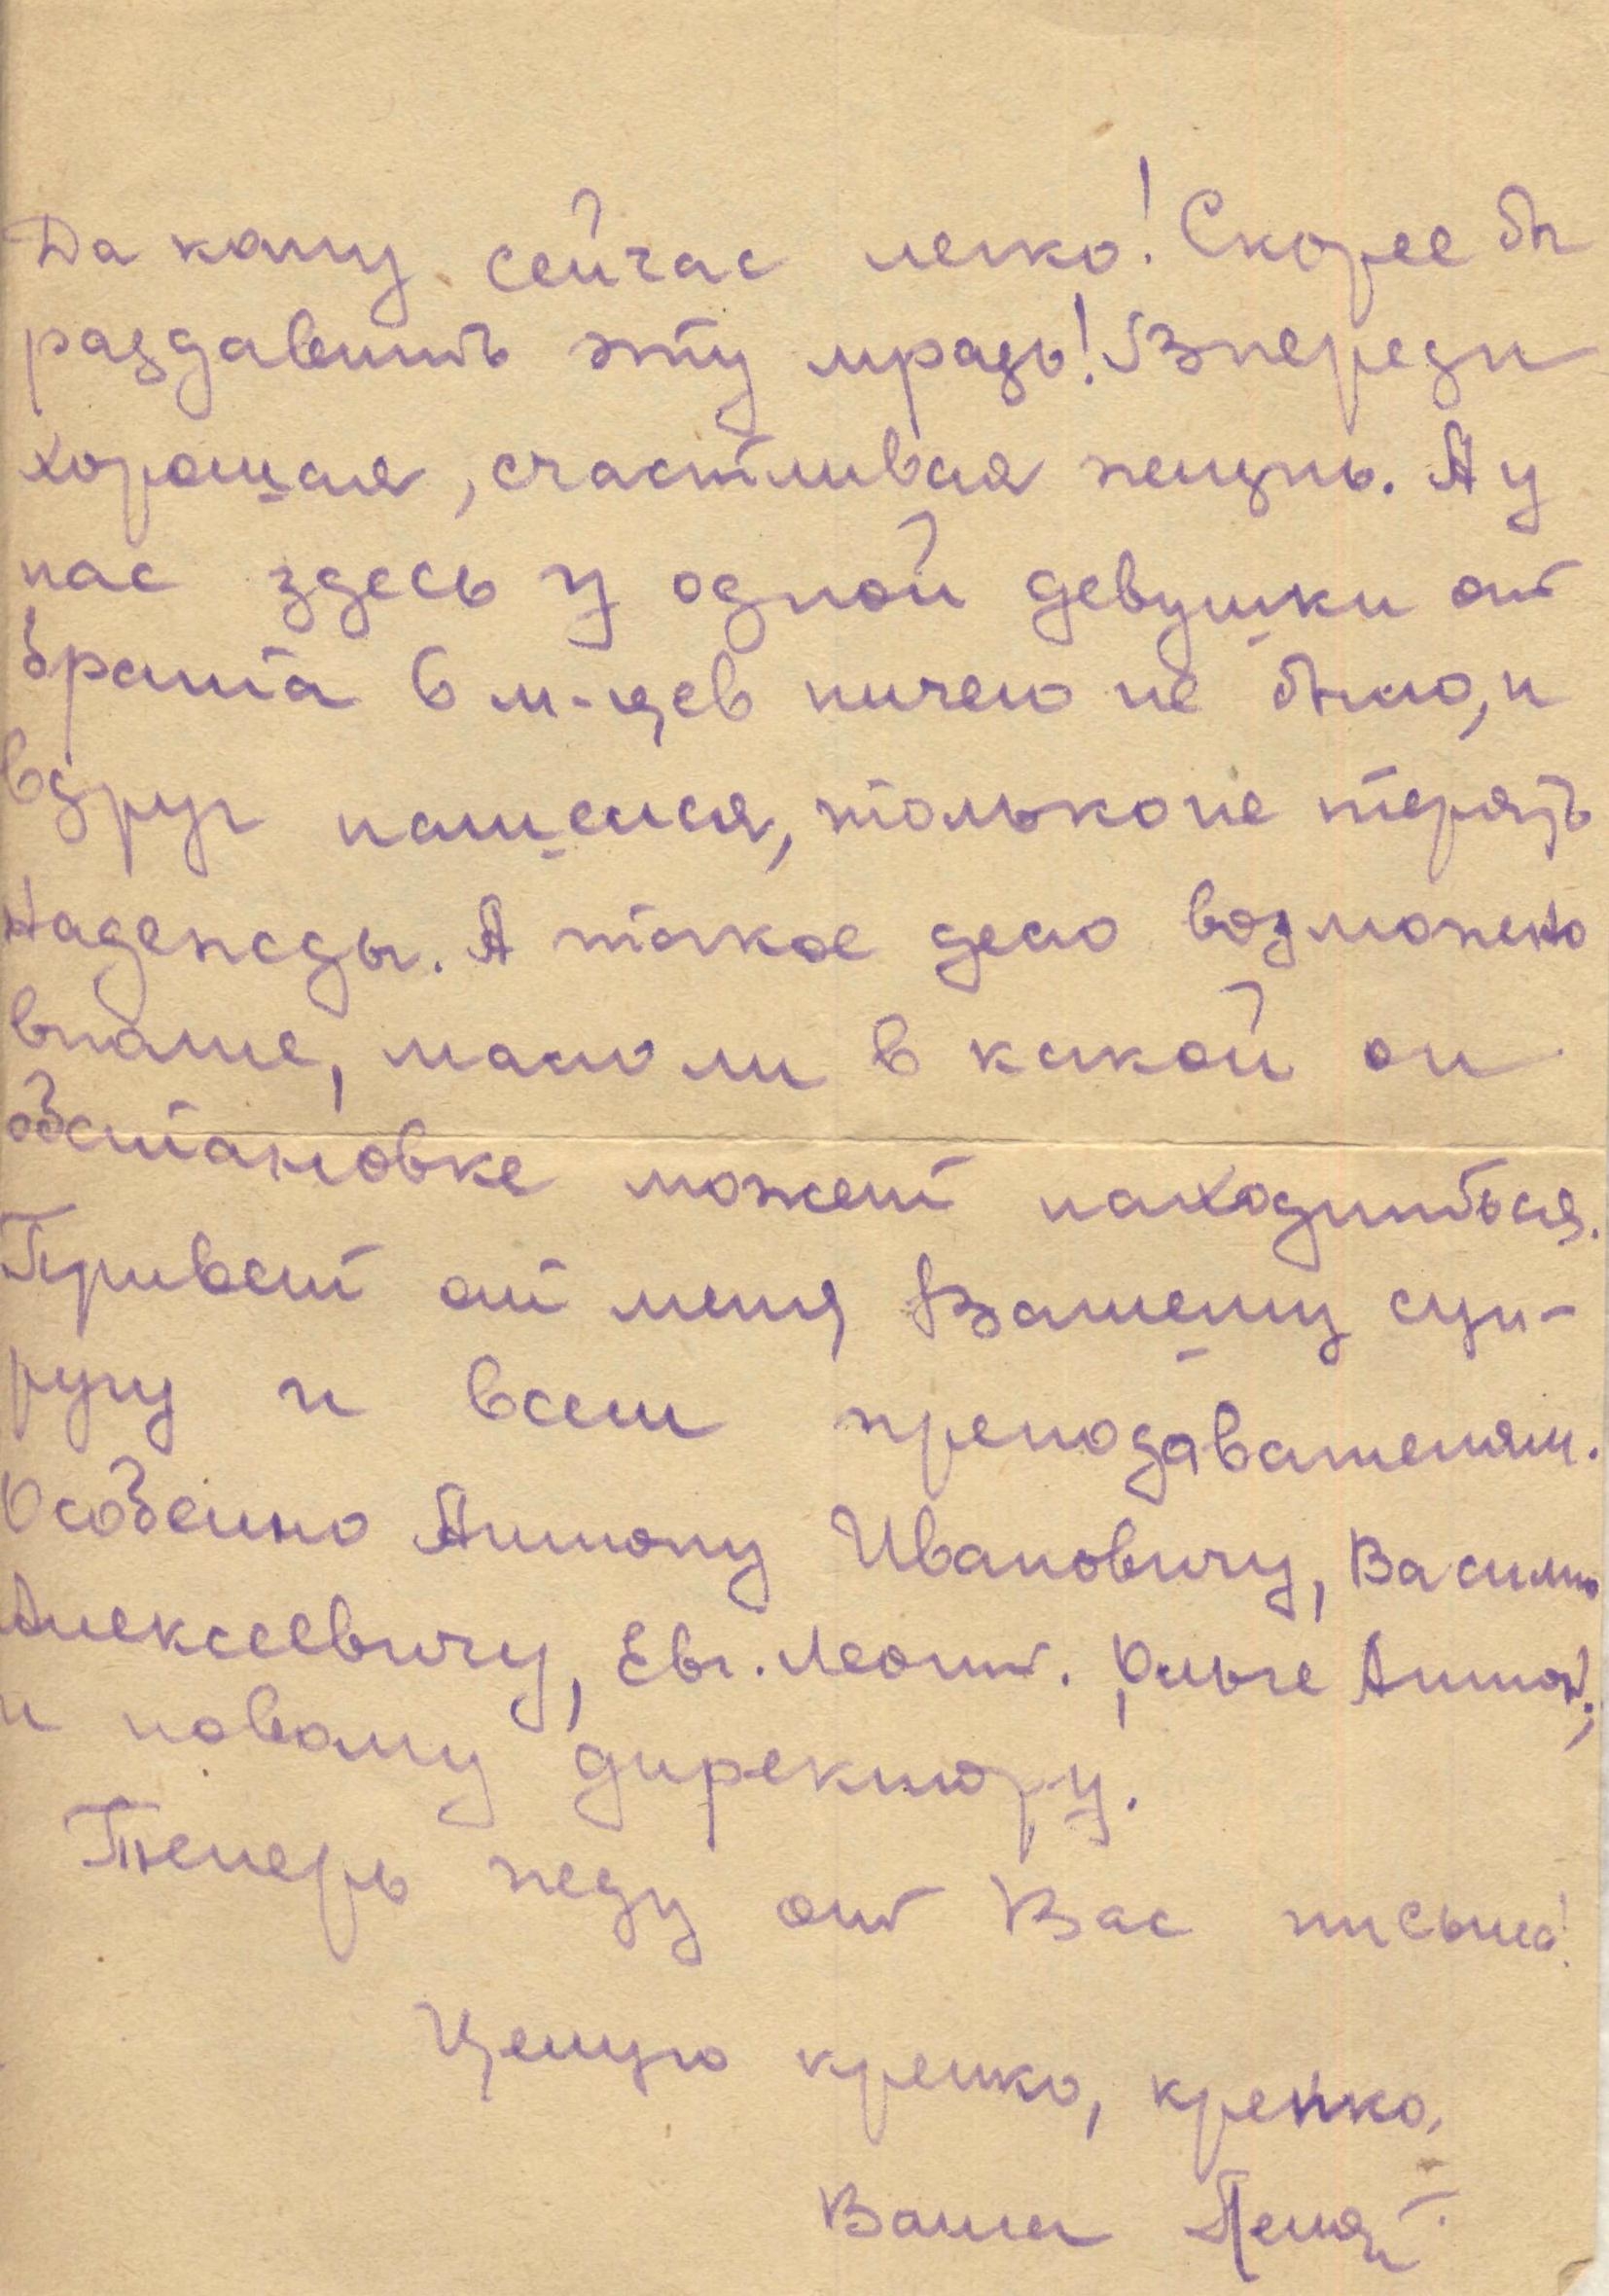 Да кому сейчас легко! Скорее бы
раздавить эту мразь! Впереди
хорошая, счастливая жизнь. А у
нас здесь у одной девушки от
брата 6 м-цев ничего не было, и
вдруг нашелся, только не терять
надежды. А такое дело возможно
вполне, мало ли в какой он
обстановке может находиться.
Привет от меня Вашему суп-
ругу и всем преподавателям.
Особенно Антону Ивановичу, Василию
Алексеевичу, Евг. Леонт. Ольге Антон.,
и новому директору.
Теперь жду от Вас письма!
Целую крепко, крепко.
Ваша